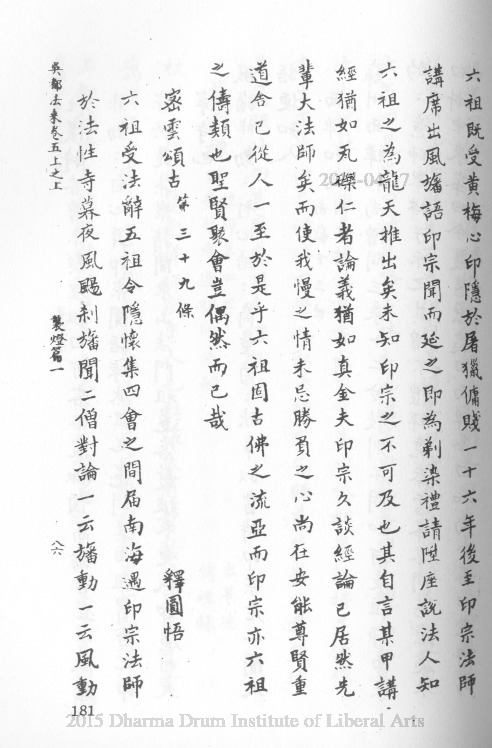 六祖既受黃梅心印隱於屠獵傭賤一十六年後至印宗法師
講席出風旛語印宗聞而延之即為剃染禮請陞座說法人知
六祖之為龍天推出矣未知印宗之不可及也其自言某甲講
經猶如瓦礫仁者論義猶如真金夫印宗久談經論已居然先
輩大法師矣而使我慢之情未忘勝負之心尚在安能尊賢重
道舍己從人一至於是乎六祖固古佛之流亞而印宗亦六祖
之儔類也聖賢聚會豈偶然而已哉
密雲頌古第三十九條
釋圓悟
六祖受法辭五祖令隱懷集四會之間屆南海遇印宗法師
於法性寺暮夜風颺剎旛聞二僧對論一云旛動一云風動
吳都法乘卷五上之上
製燈篇一
八六
181
2015 Dharma Drum Institute of Liberal Arts